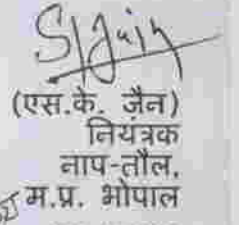 S/Jain
(एस.के. जैन)
नियंत्रक
नाप-तौल,
म.प्र. भोपाल